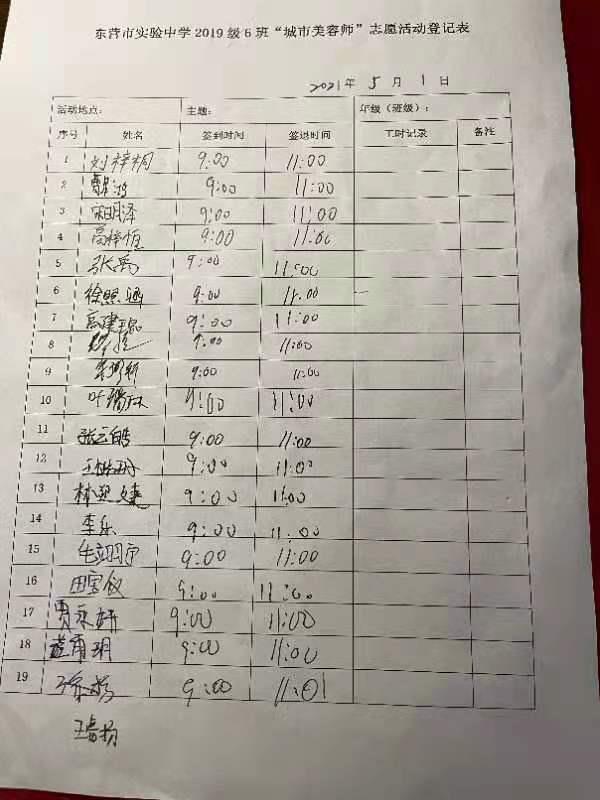 东营市实验中学2019级6班“城市美容师”志愿活动登记表
2021年 5月 1日
活动地点： 主题： 年级（班级）：
序号 姓名 签到时间 签退时间 工时记录 备注
1 刘梓桐 9:00 11:00
2 9:00 11:00
3 宋明泽 9:00 11:00
4 高梓恒 9:00 11:00
5 张禹 9:00 11:00
6 徐照涵 9:00 11:00
7 高建瑞 9:00 11:00
8 9:00 11:00
9 9:00 11:00
10 叶 9:00 11:00
11 张云皓 9:00 11:00
12 王 9:00 11:00
13 林 9:00 11:00
14 李乐 9:00 11:00
15 9:00 11:00
16 田宝仪 9:00 11:00
17 贾永妍 9:00 11:00
18 9:00 11:00
19 9:00 11:01
王 扬